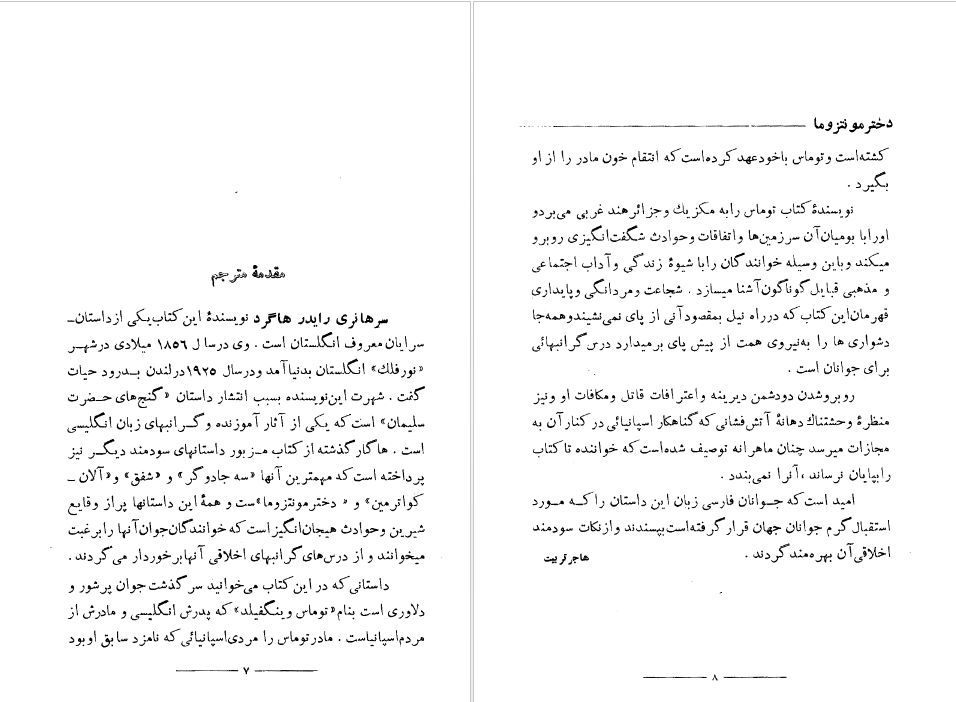 مقدمهٔ مترجم
سرهانری رایدر هاگرد نویسندهٔ این کتاب یکی از داستان‌ـ
سرایان معروف انگلستان است . وی در سال ۱۸۵۶ میلادی در شهر
«نورفلك» انگلستان بدنیا آمد و در سال ۱۹۲۵ در لندن بدرود حیات
گفت . شهرت این نویسنده بسبب انتشار داستان «گنج‌های حضرت
سلیمان» است که یکی از آثار آموزنده و گرانبهای زبان انگلیسی
است . هاگارگذشته از کتاب مزبور داستانهای سودمند دیگر نیز
پرداخته است که مهمترین آنها «سه جادوگر» و «شفق» و «آلان ـ
کواترمین» و « دختر مونتزوما»ست و همهٔ این داستانها پر از وقایع
شیرین و حوادث هیجان‌انگیز است که خوانندگان جوان آنها را برغبت
میخوانند و از درس‌های گرانبهای اخلاقی آنها برخوردار می‌گردند .
داستانی که در این کتاب می‌خوانید سرگذشت جوان پرشور و
دلاوری است بنام «توماس وینگفیلد» که پدرش انگلیسی و مادرش از
مردم اسپانیاست . مادر توماس را مردی اسپانیائی که نامزد سابق او بود
۷
دختر مونتزوما
کشته است و توماس با خود عهد کرده است که انتقام خون مادر را از او
بگیرد .
نویسندهٔ کتاب توماس را به مکزیك و جزائر هند غربی می‌برد و
او را با بومیان آن سرزمین‌ها و اتفاقات و حوادث شگفت‌انگیزی روبرو
میکند و باین وسیله خوانندگان را با شیوهٔ زندگی و آداب اجتماعی
و مذهبی قبایل گوناگون آشنا میسازد . شجاعت و مردانگی و پایداری
قهرمان این کتاب که در راه نیل بمقصود آنی از پای نمی‌نشیند و همه‌جا
دشواری ها را به‌نیروی همت از پیش پای برمیدارد درس گرانبهائی
برای جوانان است .
روبرو شدن دو دشمن دیرینه و اعترافات قاتل و مکافات او و نیز
منظرهٔ وحشتناك دهانهٔ آتش‌فشانی که گناهکار اسپانیائی در کنار آن به
مجازات میرسد چنان ماهرانه توصیف شده است که خواننده تا کتاب
را بپایان نرساند ، آنرا نمی‌بندد .
امید است که جوانان فارسی زبان این داستان را که مورد
استقبال گرم جوانان جهان قرار گرفته است بپسندند و از نکات سودمند
اخلاقی آن بهره‌مند گردند .
هاجر تربیت
۸